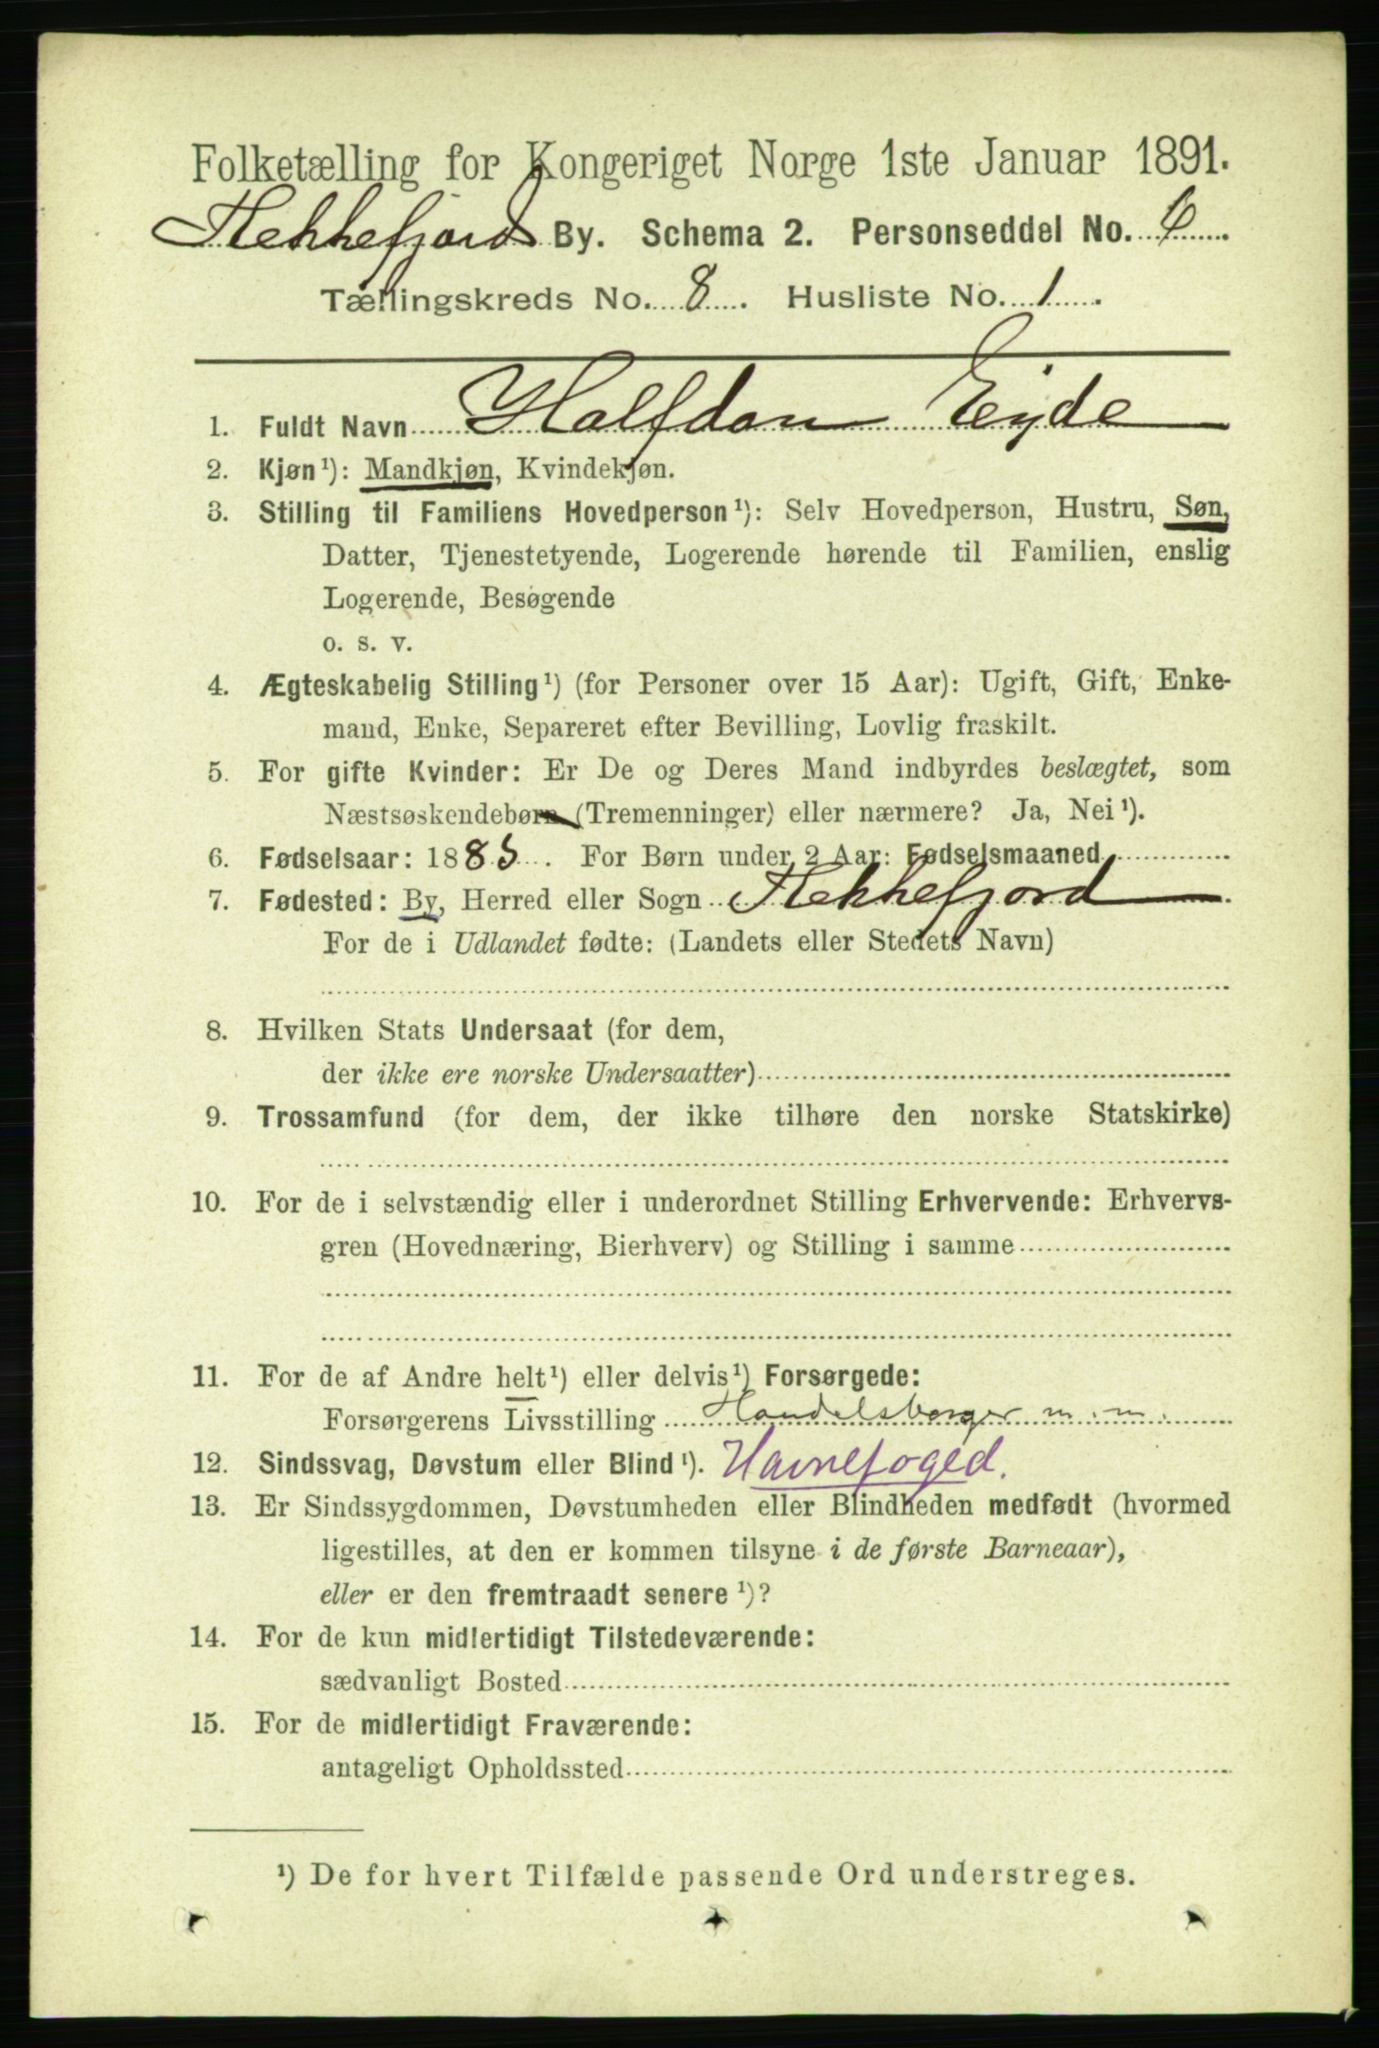 Folketælling for Kongeriget Norge 1ste Januar 1891.
Flekkefjord By. Schema 2. Personseddel No. 6
Tællingskreds No. 8. Husliste No. 1.
1. Fuldt Navn Halfdan Eyde
2. Kjøn¹): Mandkjøn, Kvindekjøn.
3. Stilling til Familiens Hovedperson¹): Selv Hovedperson, Hustru, Søn,
Datter, Tjenestetyende, Logerende hørende til Familien, enslig
Logerende, Besøgende
o. s. v.
4. Ægteskabelig Stilling¹) (for Personer over 15 Aar): Ugift, Gift, Enke-
mand, Enke, Separeret efter Bevilling, Lovlig fraskilt.
5. For gifte Kvinder: Er De og Deres Mand indbyrdes beslægtet, som
Næstsøskendebørn (Tremenninger) eller nærmere? Ja, Nei¹).
6. Fødselsaar: 1885. For Børn under 2 Aar: Fødselsmaaned
7. Fødested: By, Herred eller Sogn Flekkefjord.
For de i Udlandet fødte: (Landets eller Stedets Navn)
8. Hvilken Stats Undersaat (for dem,
der ikke ere norske Undersaatter)
9. Trossamfund (for dem, der ikke tilhøre den norske Statskirke)
10. For de i selvstændig eller i underordnet Stilling Erhvervende: Erhvervs-
gren (Hovednæring, Bierhverv) og Stilling i samme
11. For de af Andre helt¹) eller delvis¹) Forsørgede:
Forsørgerens Livsstilling Handelsborger m. m.
12. Sindssvag, Døvstum eller Blind¹). Havnefoged.
13. Er Sindssygdommen, Døvstumheden eller Blindheden medfødt (hvormed
ligestilles, at den er kommen tilsyne i de første Barneaar),
eller er den fremtraadt senere¹)?
14. For de kun midlertidigt Tilstedeværende:
sædvanligt Bosted
15. For de midlertidigt Fraværende:
antageligt Opholdssted
¹) De for hvert Tilfælde passende Ord understreges.